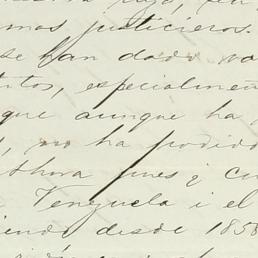 mos justicieros.
se han dado va
tos, especialmen
que aunque ha
, no ha podido
Ahora pues y cu
Venezuela i el
iendo desde 1858